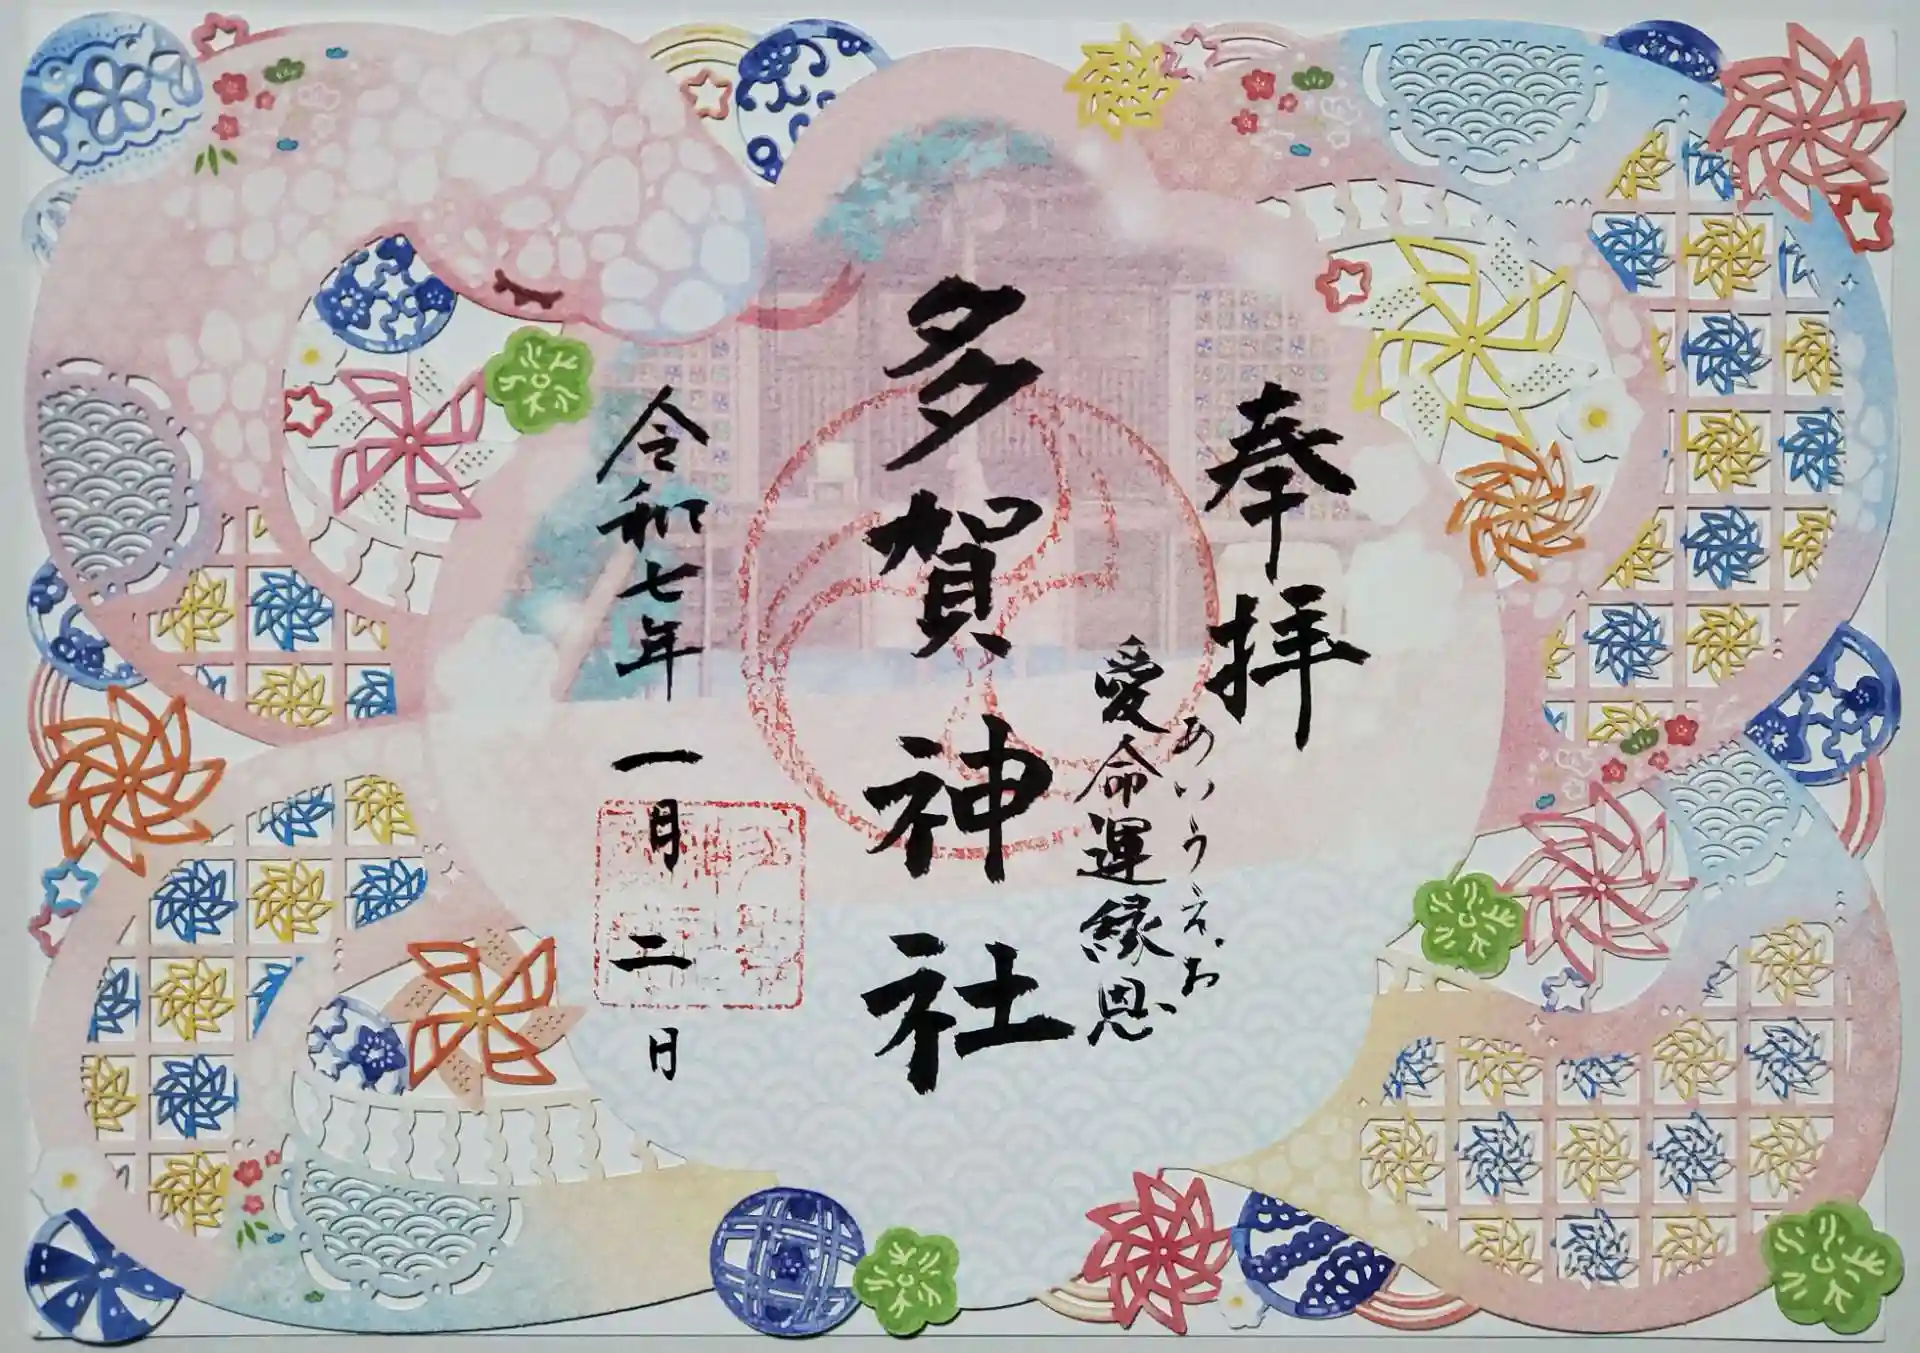 奉拝
あいうえお
愛命運縁恩
多賀神社
令和七年 一月 二日